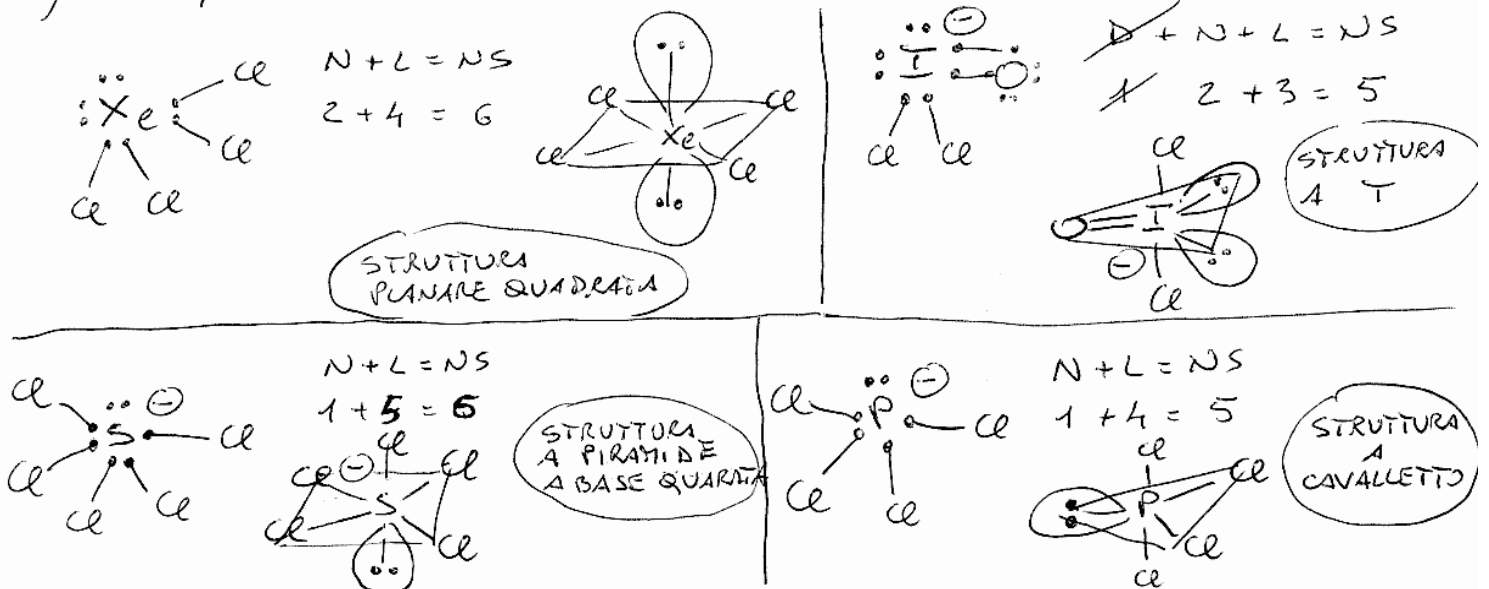 :Xe:
Cl
Cl
Cl Cl
N + L = NS
2 + 4 = 6
Cl Cl
Xe
Cl Cl
STRUTTURA
PLANARE QUADRATA
I −
O
Cl Cl
D + N + L = NS
1 2 + 3 = 5
Cl
O I
− Cl
STRUTTURA
A T
Cl
S −
Cl
Cl
Cl Cl
N + L = NS
1 + 5 = 6
Cl
Cl − Cl
S
Cl Cl
STRUTTURA
A PIRAMIDE
A BASE QUARATA
P −
Cl Cl
Cl Cl
N + L = NS
1 + 4 = 5
Cl
Cl
P
Cl
Cl
STRUTTURA
A
CAVALLETTO